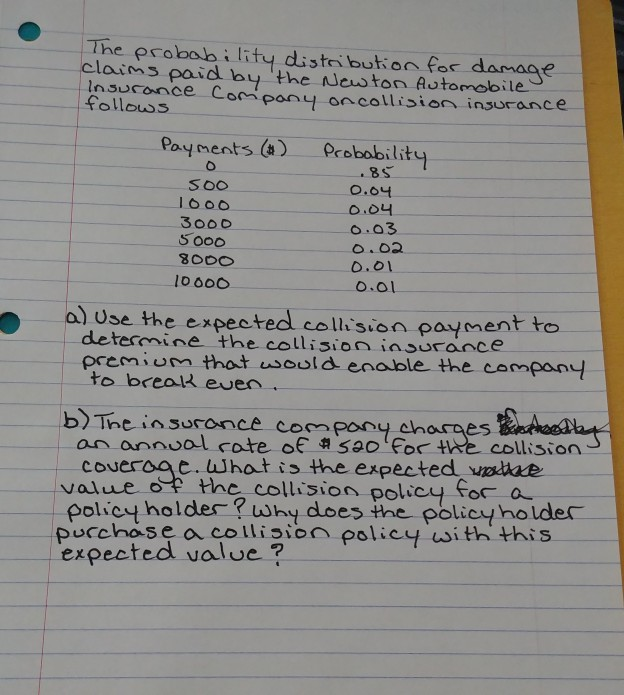 The probability distribution for damage
claims paid by the Newton Automobile
Insurance Company on collision insurance
follows
Payments ($) Probability
0 .85
500 0.04
1000 0.04
3000 0.03
5000 0.02
8000 0.01
10000 0.01
a) Use the expected collision payment to
determine the collision insurance
premium that would enable the company
to break even.
b) The insurance company charges
an annual rate of $520 for the collision
coverage. What is the expected
value of the collision policy for a
policyholder? Why does the policyholder
purchase a collision policy with this
expected value?